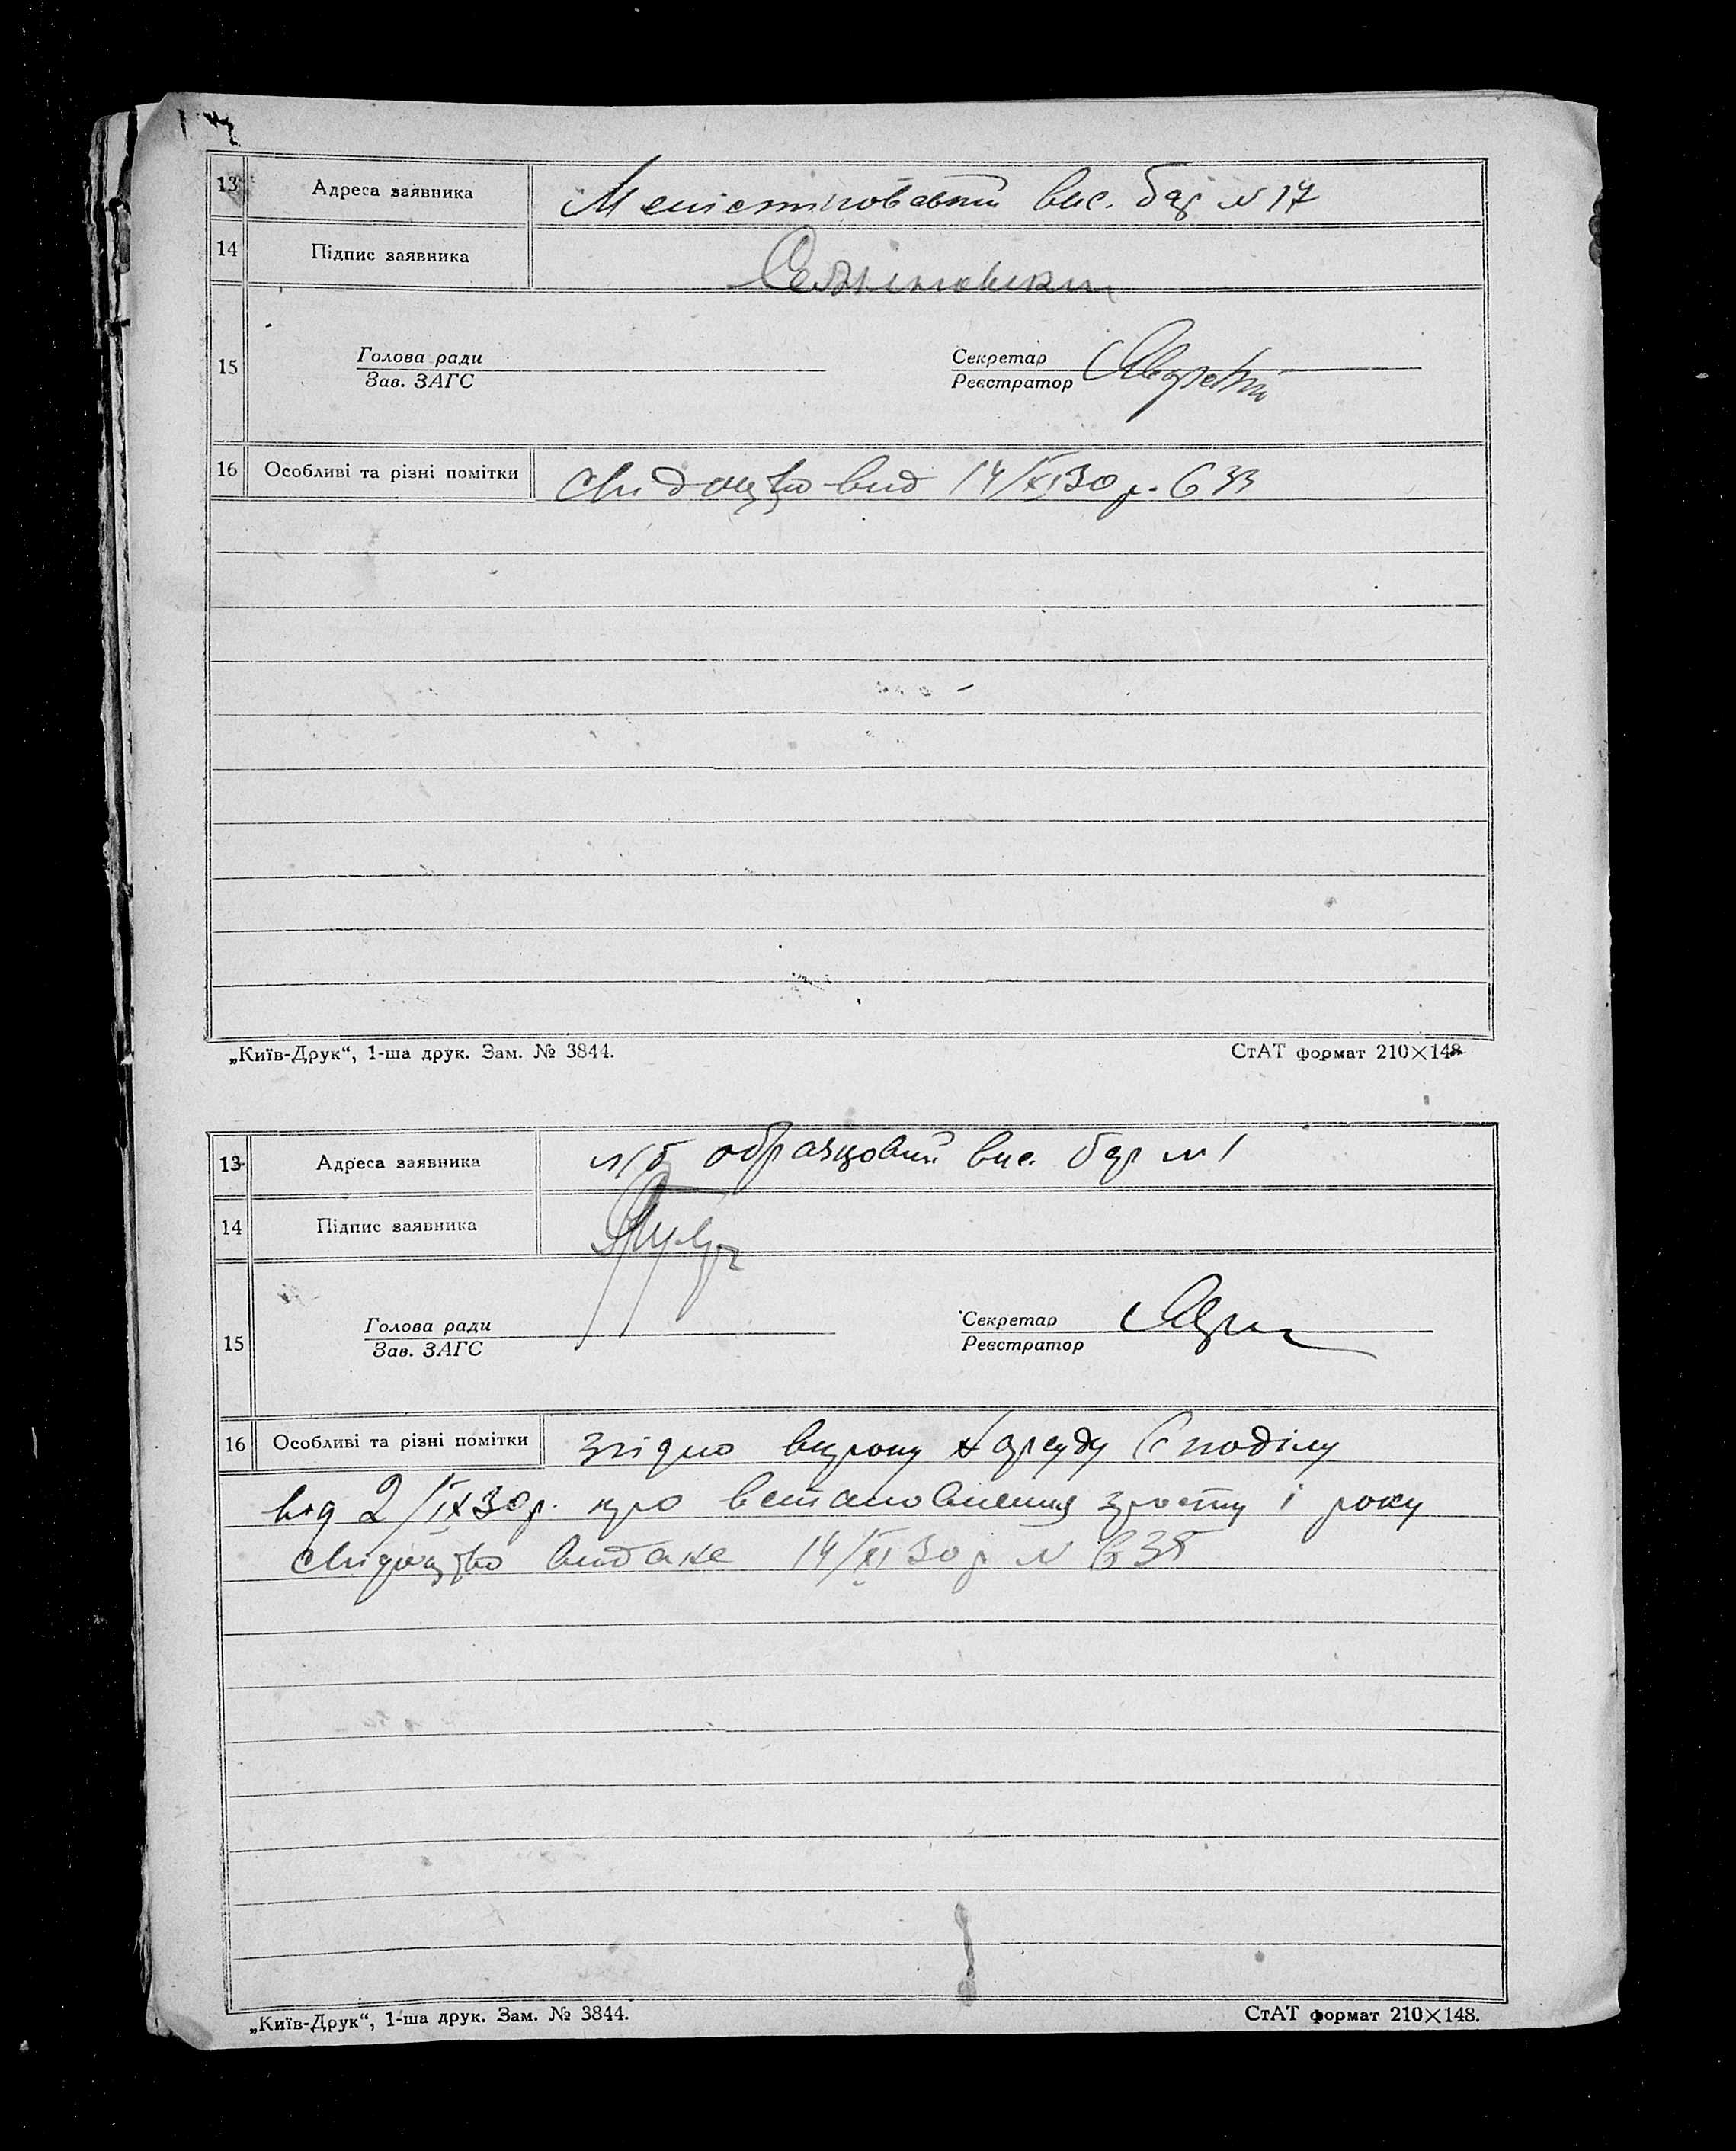 13 Адреса заявника вис. буд N 17
14 Підпис заявника
15 Голова ради Секретар
Зав. ЗАГС Реєстратор
16 Особливі та різні помітки свідоцтво вид 14/XI 30 р. 633
„Київ-Друк“, 1-ша друк. Зам. № 3844. СтАТ формат 210×148
13 Адреса заявника образцовий вис. буд N 1
14 Підпис заявника
15 Голова ради Секретар
Зав. ЗАГС Реєстратор
16 Особливі та різні помітки згідно вироку Нарсуду
від 2/IX 30 р. про встановлення і року
свідоцтво видане 14/XI 30 р N
„Київ-Друк“, 1-ша друк. Зам. № 3844. СтАТ формат 210×148.